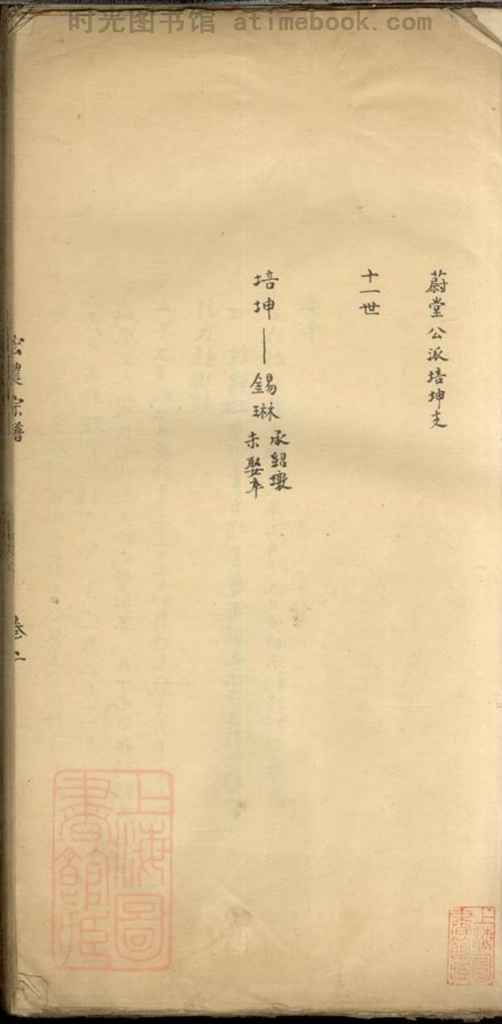 时光图书馆 atimebook.com
蔚堂公派培坤支
十一世
培坤 — 錫琳 承紹墩
未娶卒
宗譜
卷二
上海圖書館藏
上海圖書館藏